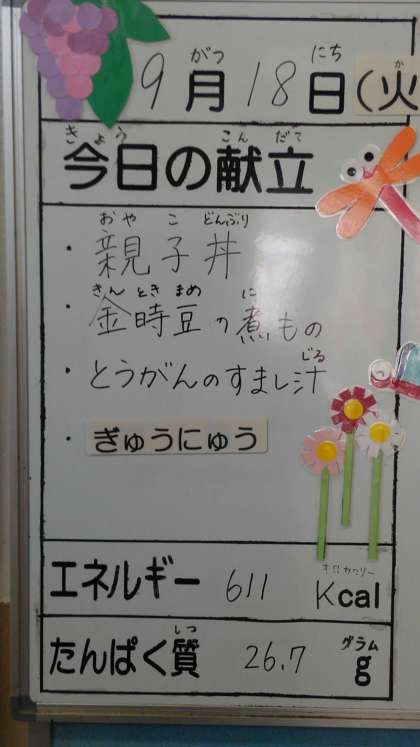 がつ にち か
9月18日(火
きょう こんだて
今日の献立
おや こ どんぶり
・親子丼
きんときまめ に
・金時豆の煮もの
じる
・とうがんのすまし汁
・ぎゅうにゅう
キロカロリー
エネルギー 611 Kcal
しつ グラム
たんぱく質 26.7 g